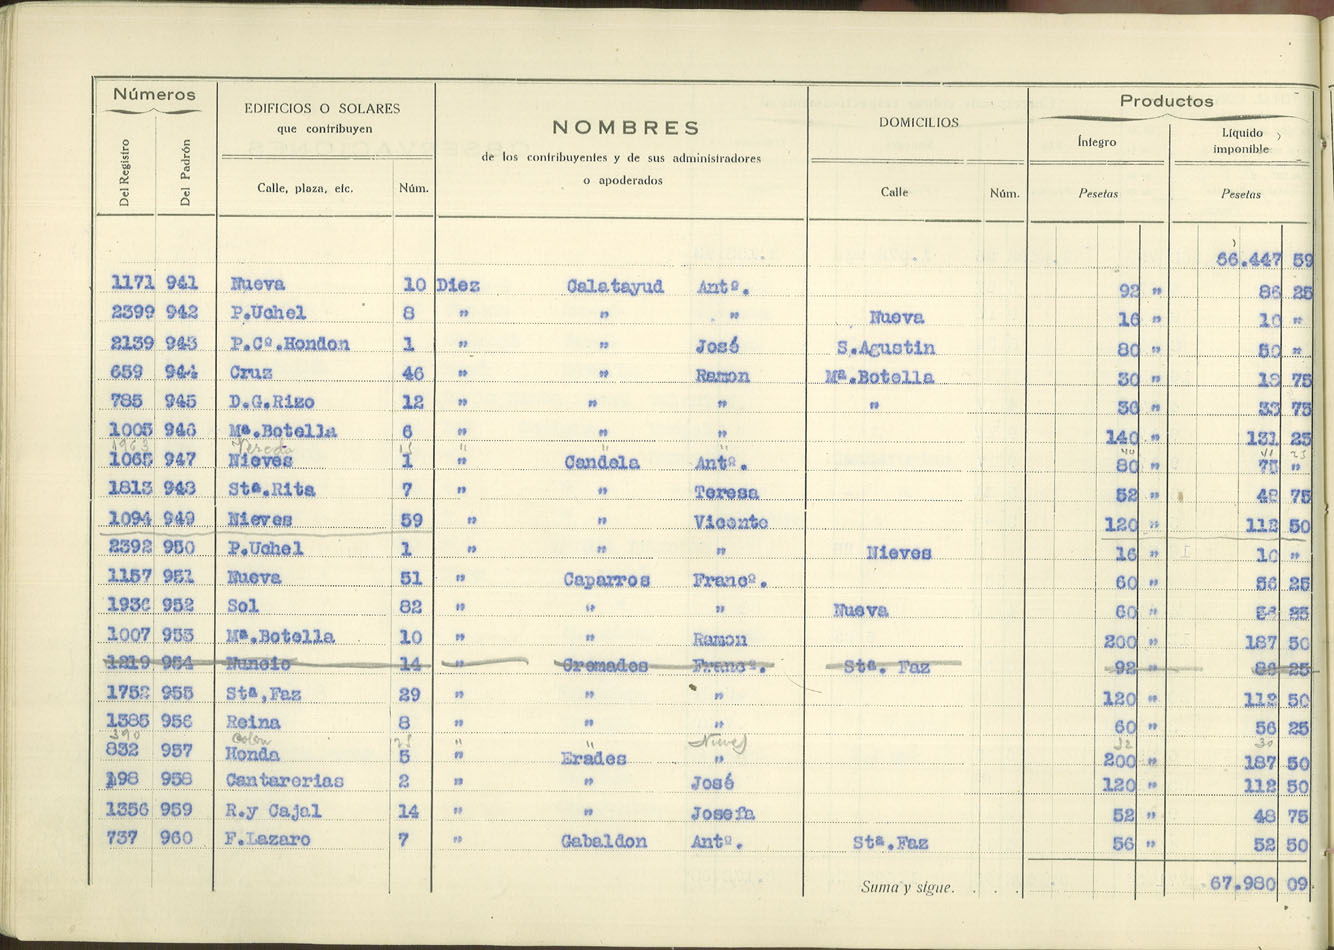 Números
EDIFICIOS O SOLARES
que contribuyen
Calle, plaza, etc.
Núm.
NOMBRES
de los contribuyentes y de sus administradores
o apoderados
DOMICILIOS
Calle
Núm.
Productos
Íntegro
Pesetas
Líquido
imponible
Pesetas
Del Registro
Del Padrón
66.447 59
1171 941 Nueva 10 Diez Calatayud Antº. 92 " 86 25
2399 942 P.Uchel 8 " " " Nueva 16 " 10 "
2139 943 P.Cº.Hondon 1 " " José S.Agustin 80 " 50 "
659 944 Cruz 46 " " Ramon Mª.Botella 30 " 18 75
785 945 D.G.Rizo 12 " " " " 30 " 33 75
1005 946 Mª.Botella 6 " " " 140 " 131 25
1963 " " "
1065 947 Nieves 1 " Candela Antº. 80 " 75 "
1813 948 Stª.Rita 7 " " Teresa 52 " 48 75
1094 949 Nieves 59 " " Vicente 120 " 112 50
2392 950 P.Uchel 1 " " " Nieves 16 " 10 "
1157 951 Nueva 51 " Caparros Francº. 60 " 56 25
1936 952 Sol 82 " " " Nueva 60 " 56 25
1007 953 Mª.Botella 10 " " Ramon 200 " 187 50
1219 954 Nuncio 14 " Cremades Francº. Stª. Faz 92 " 86 25
1752 955 Stª,Faz 29 " " " 120 " 112 50
1385 956 Reina 8 " " " 60 " 56 25
390 Colon " " Nieves 32 30
832 957 Honda 5 " Erades " 200 " 187 50
198 958 Cantarerias 2 " " José 120 " 112 50
1356 959 R.y Cajal 14 " " Josefa 52 " 48 75
737 960 F.Lazaro 7 " Gabaldon Antº. Stª.Faz 56 " 52 50
Suma y sigue. . . . 67.980 09